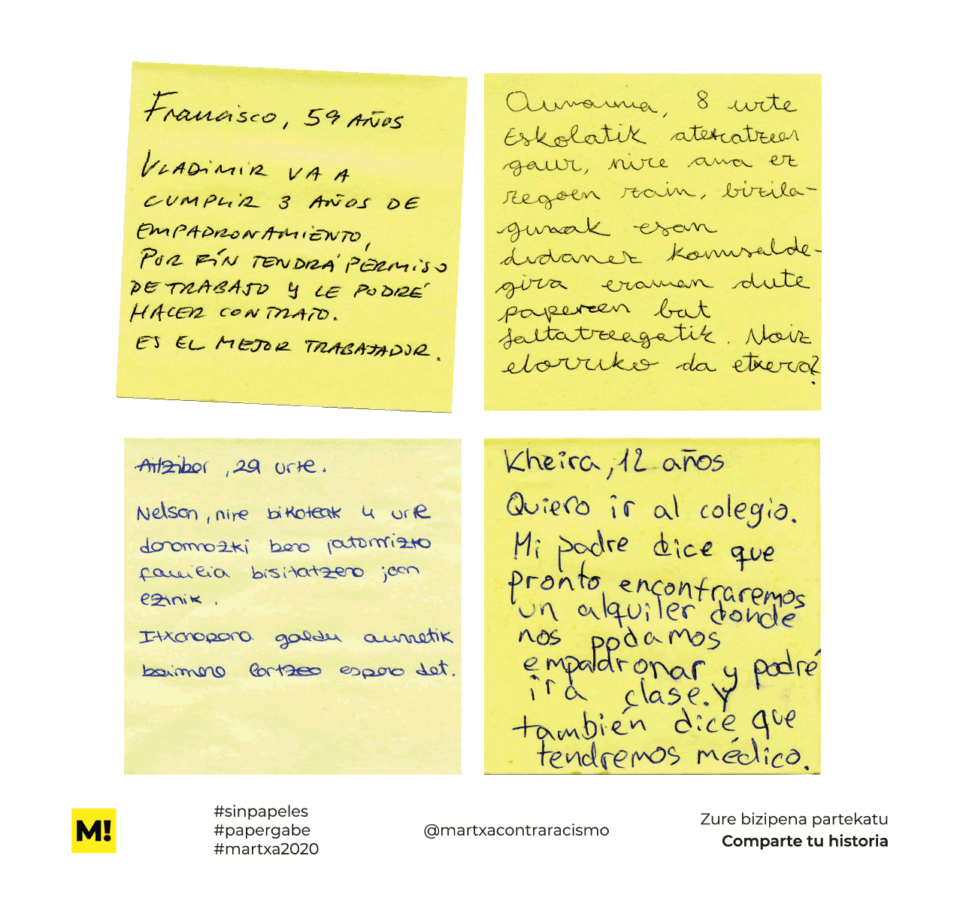 Francisco, 59 AÑOS
VLADIMIR VA A
CUMPLIR 3 AÑOS DE
EMPADRONAMIENTO,
POR FÍN TENDRÁ PERMISO
DE TRABAJO Y LE PODRÉ
HACER CONTRATO.
ES EL MEJOR TRABAJADOR.
8 urte
Eskolatik ateratzean
gaur, nire ama ez
zegoen zain, bizila-
gunak esan
didanez komisalde-
gira eraman dute
paperen bat
faltatzeagatik. Noiz
etorriko da etxera?
Aitziber, 29 urte.
Nelson, nire bikoteak 4 urte
daramazki bere jatorrizko
familia bisitatzera joan
ezinik.
Itxaropena galdu aurretik
baimena lortzea espero det.
Kheira, 12 años
Quiero ir al colegio.
Mi padre dice que
pronto encontraremos
un alquiler donde
nos podamos
empaldronar y podré
ir a clase. Y
también dice que
tendremos médico.
M!
#sinpapeles
#papergabe
#martxa2020
@martxacontraracismo
Zure bizipena partekatu
Comparte tu historia